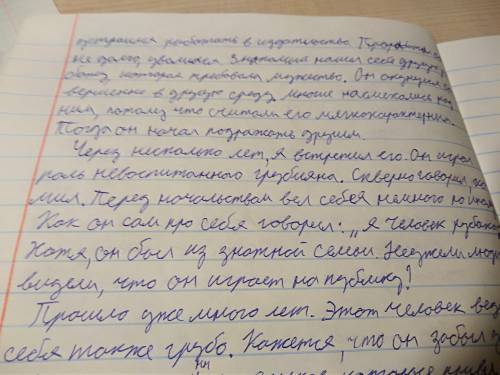 устроился работать в издательство. Проработал
не долго, уволился. Знакомый нашел себе другую р
боту, которая требовала мужество. Он окунулся со
вершенно в другую среду, многие насмехались над
ним, потому что считали его мягкохарактерным.
Тогда он начал подражать другим.
Через несколько лет, я встретил его. Он играл
роль невоспитанного грубияна. Скверно говорил, ха
мил. Перед начальством вел себя намного по ина
Как он сам про себя говорил: „Я человек рубаха
Хотя, он был из знатной семьи. Неужели люди
видели, что он играет на публику?
Прошло уже много лет. Этот человек вел
себя также грубо. Кажется, что он забыл